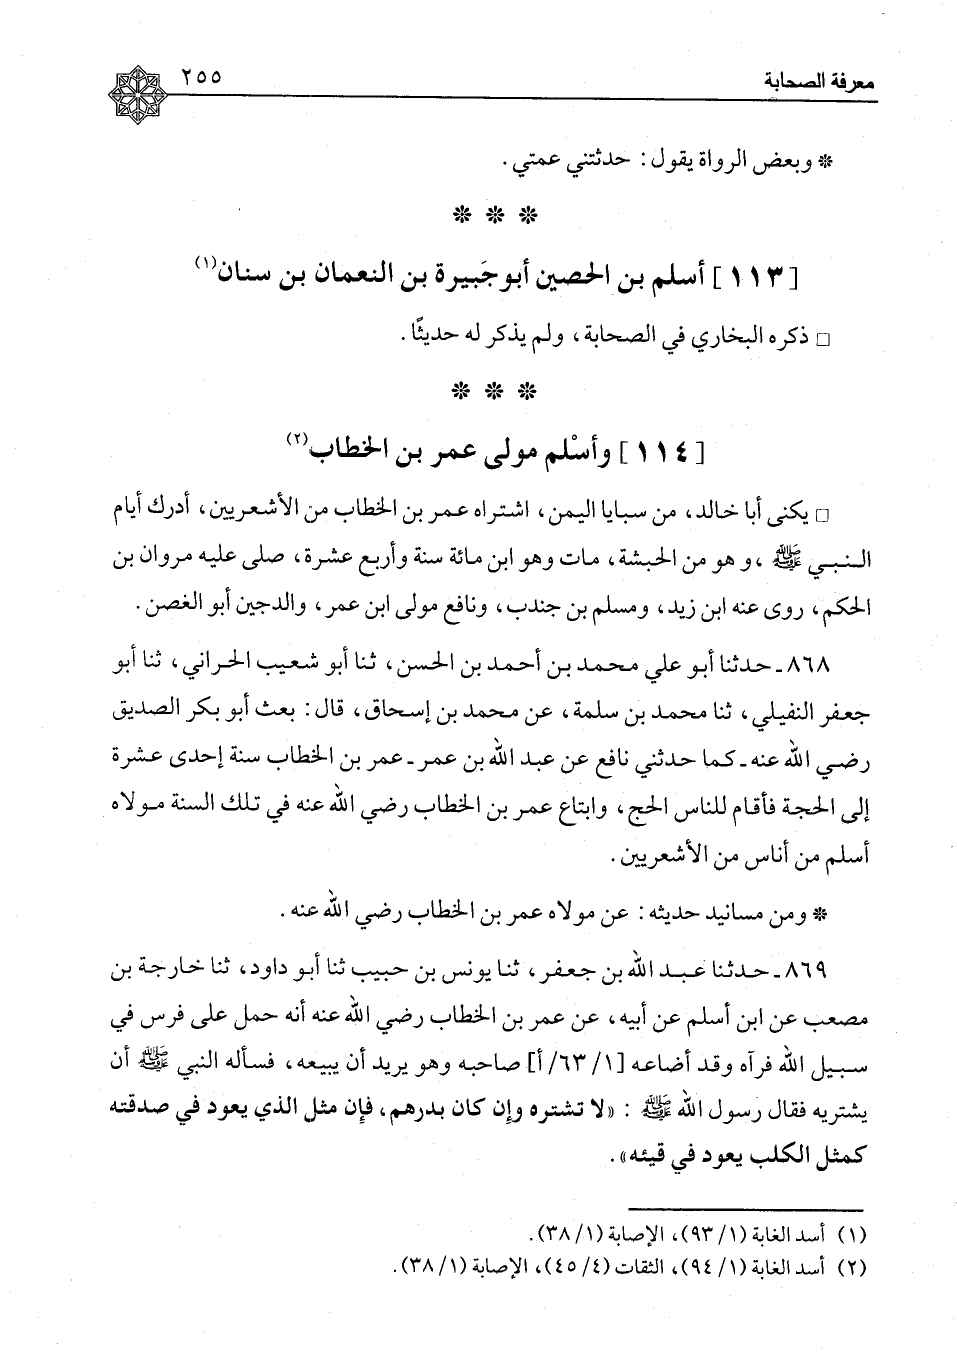 معرفة الصحابة ٢٥٥
* وبعض الرواة يقول: حدثتني عمتي.
* * *
[١١٣] أسلم بن الحصين أبو جَبيرة بن النعمان بن سنان(١)
□ ذكره البخاري في الصحابة، ولم يذكر له حديثًا.
* * *
[١١٤] وأسْلم مولى عمر بن الخطاب(٢)
□ يكنى أبا خالد، من سبايا اليمن، اشتراه عمر بن الخطاب من الأشعريين، أدرك أيام
النبي ﷺ، وهو من الحبشة، مات وهو ابن مائة سنة وأربع عشرة، صلى عليه مروان بن
الحكم، روى عنه ابن زيد، ومسلم بن جندب، ونافع مولى ابن عمر، والدجين أبو الغصن.
٨٦٨ـ حدثنا أبو علي محمد بن أحمد بن الحسن، ثنا أبو شعيب الحراني، ثنا أبو
جعفر النفيلي، ثنا محمد بن سلمة، عن محمد بن إسحاق، قال: بعث أبو بكر الصديق
رضي الله عنه ـ كما حدثني نافع عن عبد الله بن عمر ـ عمر بن الخطاب سنة إحدى عشرة
إلى الحجة فأقام للناس الحج، وابتاع عمر بن الخطاب رضي الله عنه في تلك السنة مولاه
أسلم من أناس من الأشعريين.
* ومن مسانيد حديثه: عن مولاه عمر بن الخطاب رضي الله عنه.
٨٦٩ـ حدثنا عبد الله بن جعفر، ثنا يونس بن حبيب ثنا أبو داود، ثنا خارجة بن
مصعب عن ابن أسلم عن أبيه، عن عمر بن الخطاب رضي الله عنه أنه حمل على فرس في
سبيل الله فرآه وقد أضاعه [١/ ٦٣/ أ] صاحبه وهو يريد أن يبيعه، فسأله النبي ﷺ أن
يشتريه فقال رسول الله ﷺ: «لا تشتره وإن كان بدرهم، فإن مثل الذي يعود في صدقته
كمثل الكلب يعود في قيئه».
(١) أسد الغابة (١/ ٩٣)، الإصابة (١/ ٣٨).
(٢) أسد الغابة (١/ ٩٤)، الثقات (٤/ ٤٥)، الإصابة (١/ ٣٨).